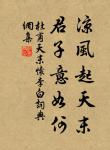 涼風起天末
君子意如何
杜甫天末懷李白詞典
網集